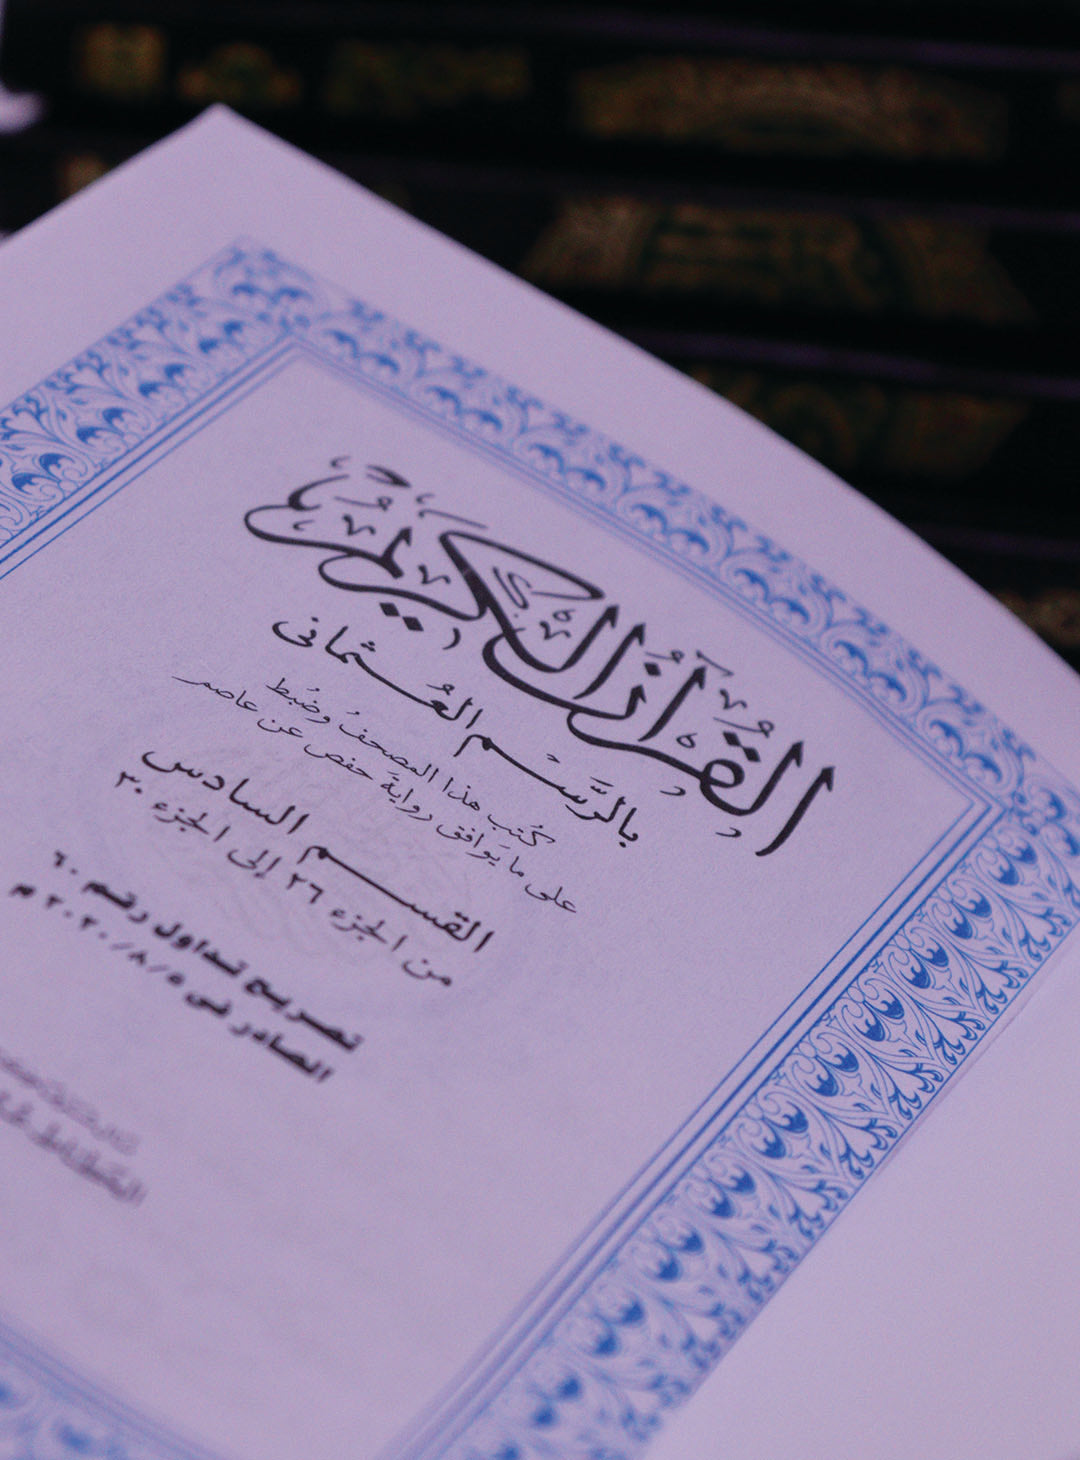 القُرْآنُ الْكَرِيمُ
بالرَّسْمِ العُثمانى
كُتِبَ هذا المصحفُ وضُبط
على ما يوافق روايةَ حفص عن عاصم
القسم السادس
من الجزء ٢٦ إلى الجزء ٣٠
تصريح تداول رقم ٦٠
الصادر فى ٢٠٢٠/٨/٥ م